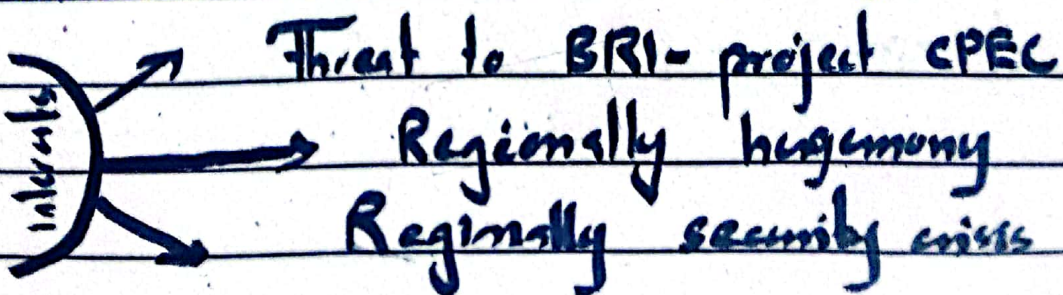 Interests
Threat to BRI- project CPEC
Regionally hegemony
Reginally security crisis